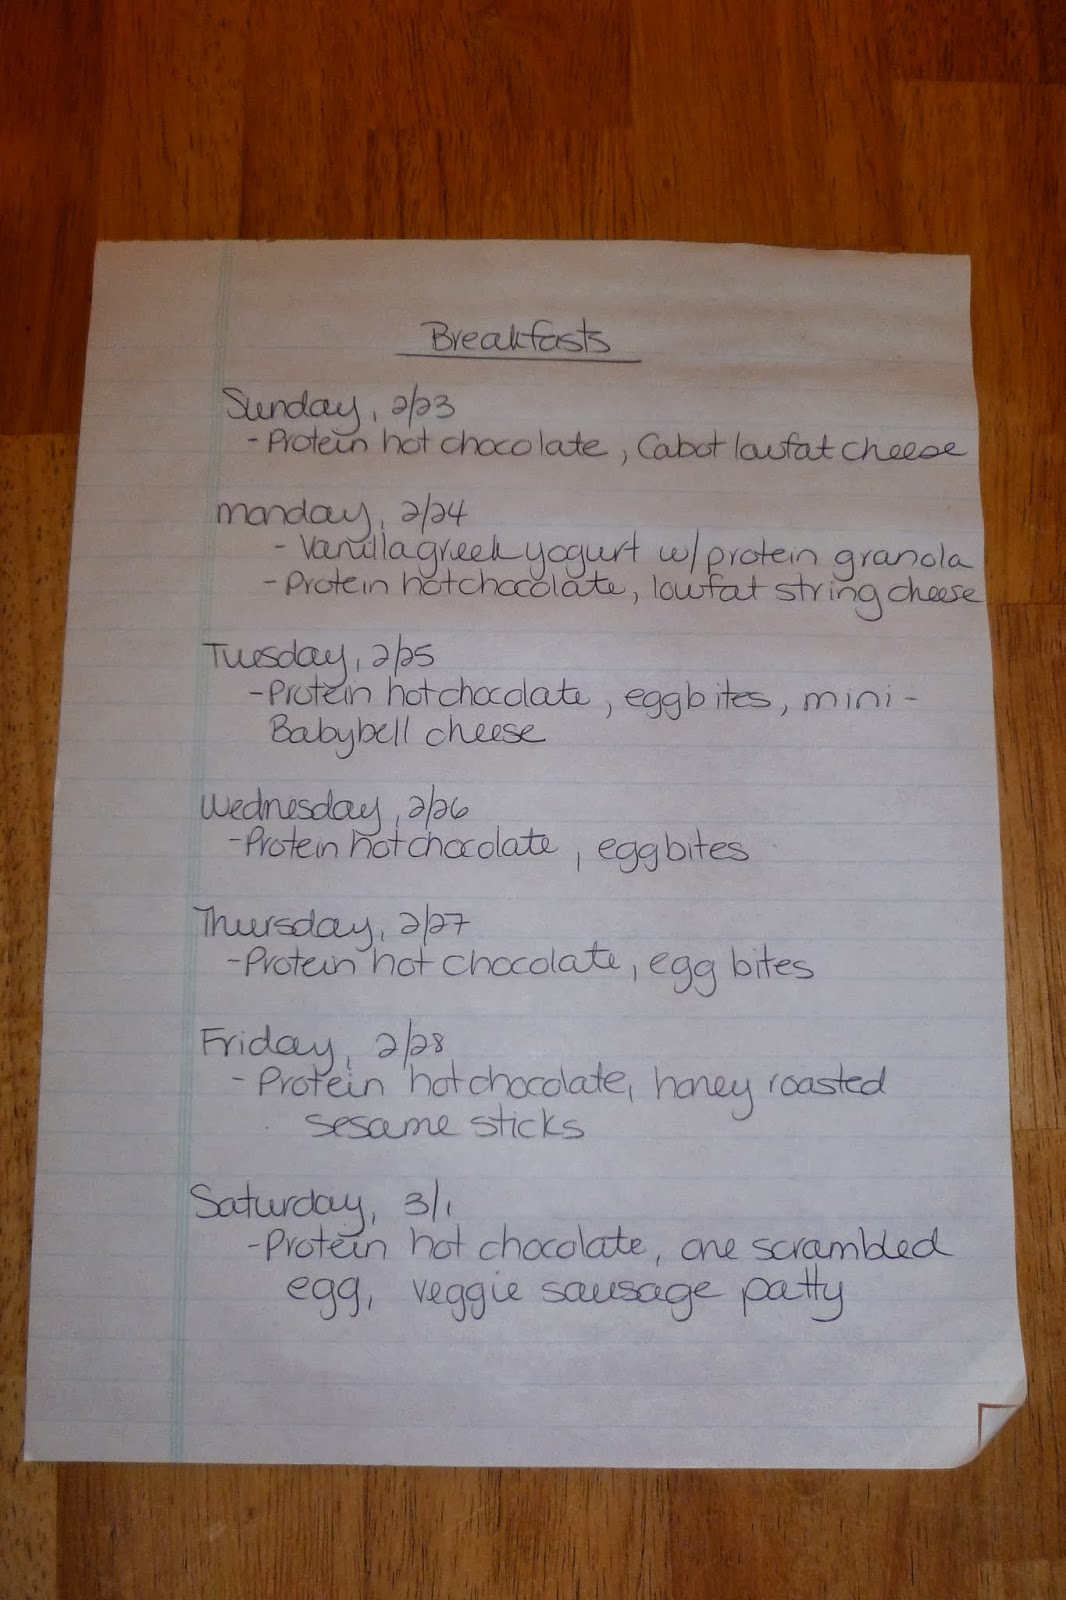 Breakfasts
Sunday, 2/23
- Protein hot chocolate, Cabot lowfat cheese
monday, 2/24
- Vanilla greek yogurt w/ protein granola
- Protein hot chocolate, lowfat string cheese
Tuesday, 2/25
- Protein hot chocolate, egg bites, mini-
Babybell cheese
Wednesday, 2/26
- Protein hot chocolate, egg bites
Thursday, 2/27
- Protein hot chocolate, egg bites
Friday, 2/28
- Protein hot chocolate, honey roasted
sesame sticks
Saturday, 3/1
- Protein hot chocolate, one scrambled
egg, veggie sausage patty